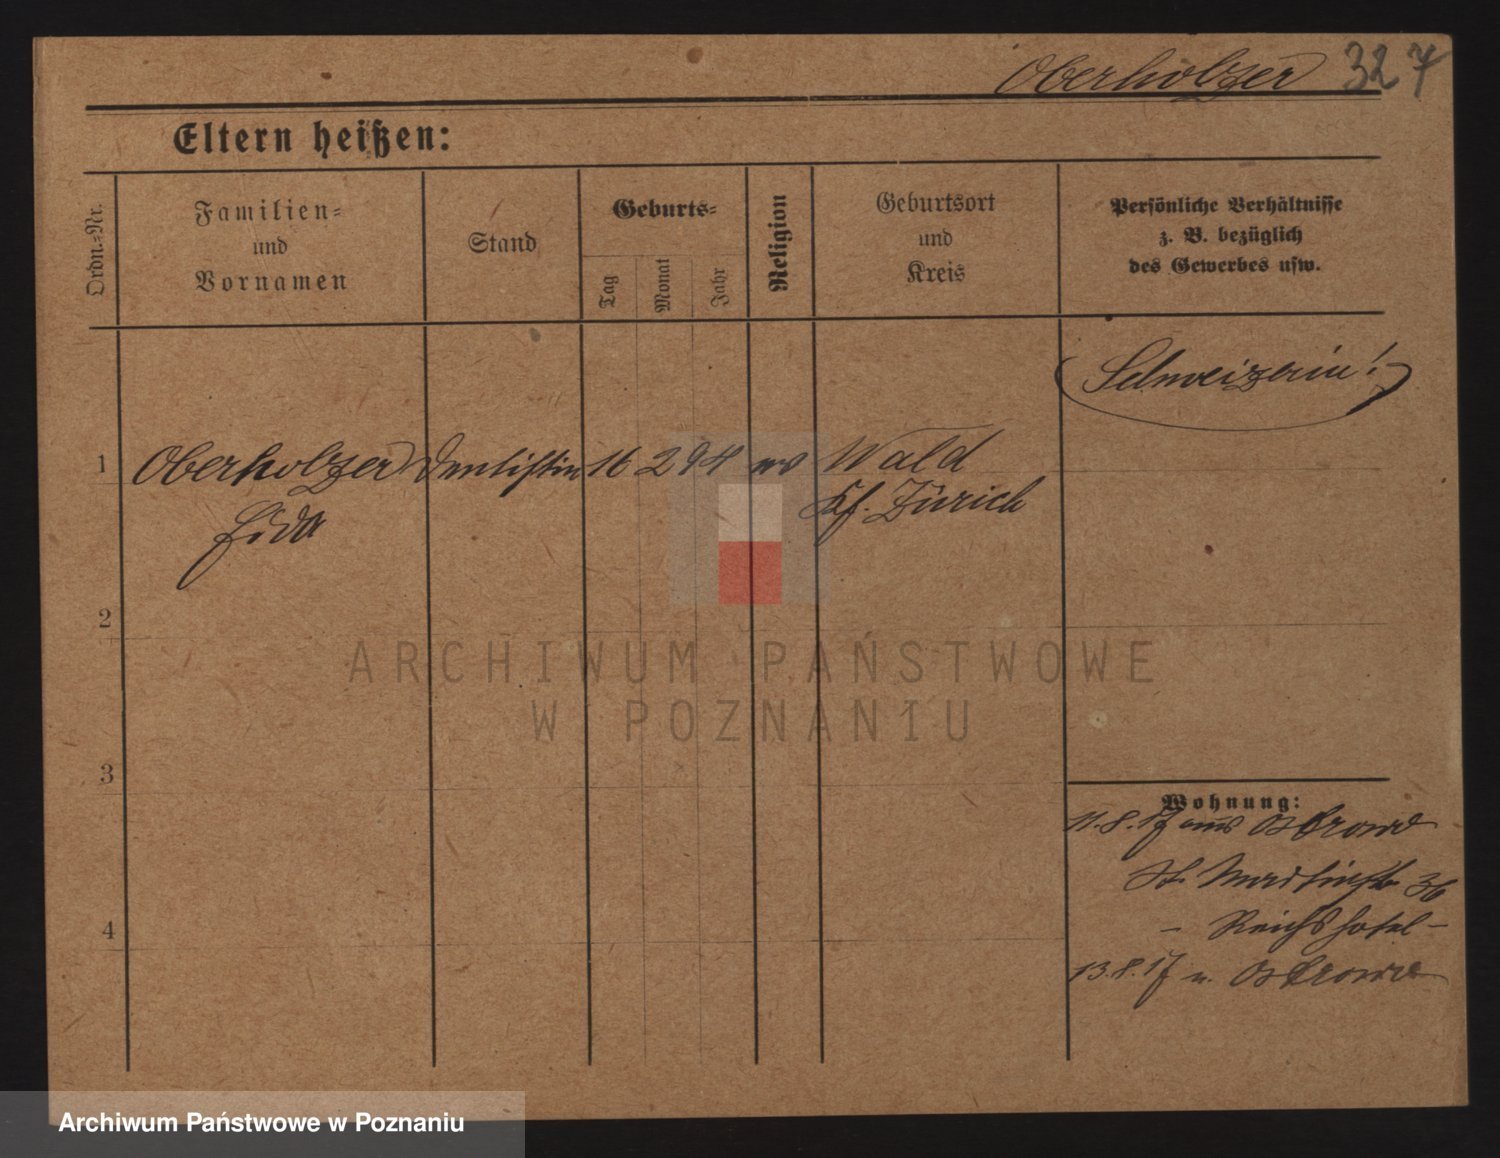 Oberholzer 327
Eltern heißen:
Ordn.-Nr.
Familien-
und
Vornamen
Stand
Geburts-
Tag
Monat
Jahr
Religion
Geburtsort
und
Kreis
Persönliche Verhältnisse
z. B. bezüglich
des Gewerbes usw.
Schweizerin!
1 Oberholzer Dentistin 16 2 94 ev Wald
Kr. Zürich
2
3
4
Wohnung:
11.8.17 aus Ostrowo
St. Martinstr. 36
- Reichshotel -
13.8.17 n. Ostrowo
ARCHIWUM PAŃSTWOWE
W POZNANIU
Archiwum Państwowe w Poznaniu